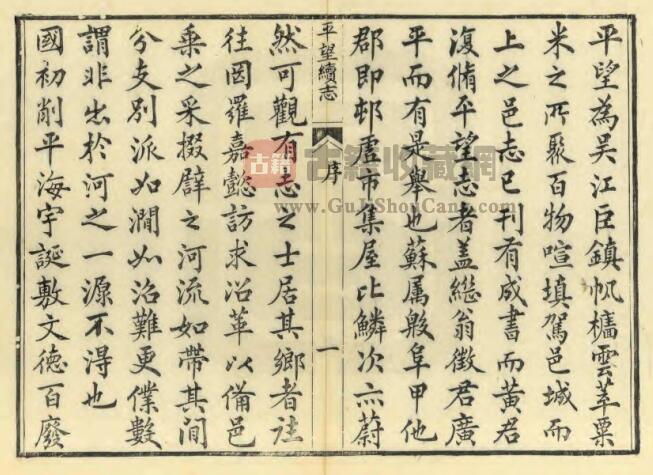 平望為吳江巨鎮帆檣雲萃粟
米之所聚百物喧填駕邑城而
上之邑志已刊有成書而黃君
復脩平望志者蓋繼翁徵君廣
平而有是舉也蘇属殷阜甲他
郡即邨廬市集屋比鱗次亦蔚
平望續志
序
一
然可觀有志之士居其鄉者往
往囙羅嘉懿訪求沿革以備邑
乗之采掇辟之河流如帶其間
分支別派如澗如沼難更僕數
謂非出於河之一源不得也
國初削平海宇誕敷文德百廢
古籍
古籍收藏網
www.GuJiShouCang.com